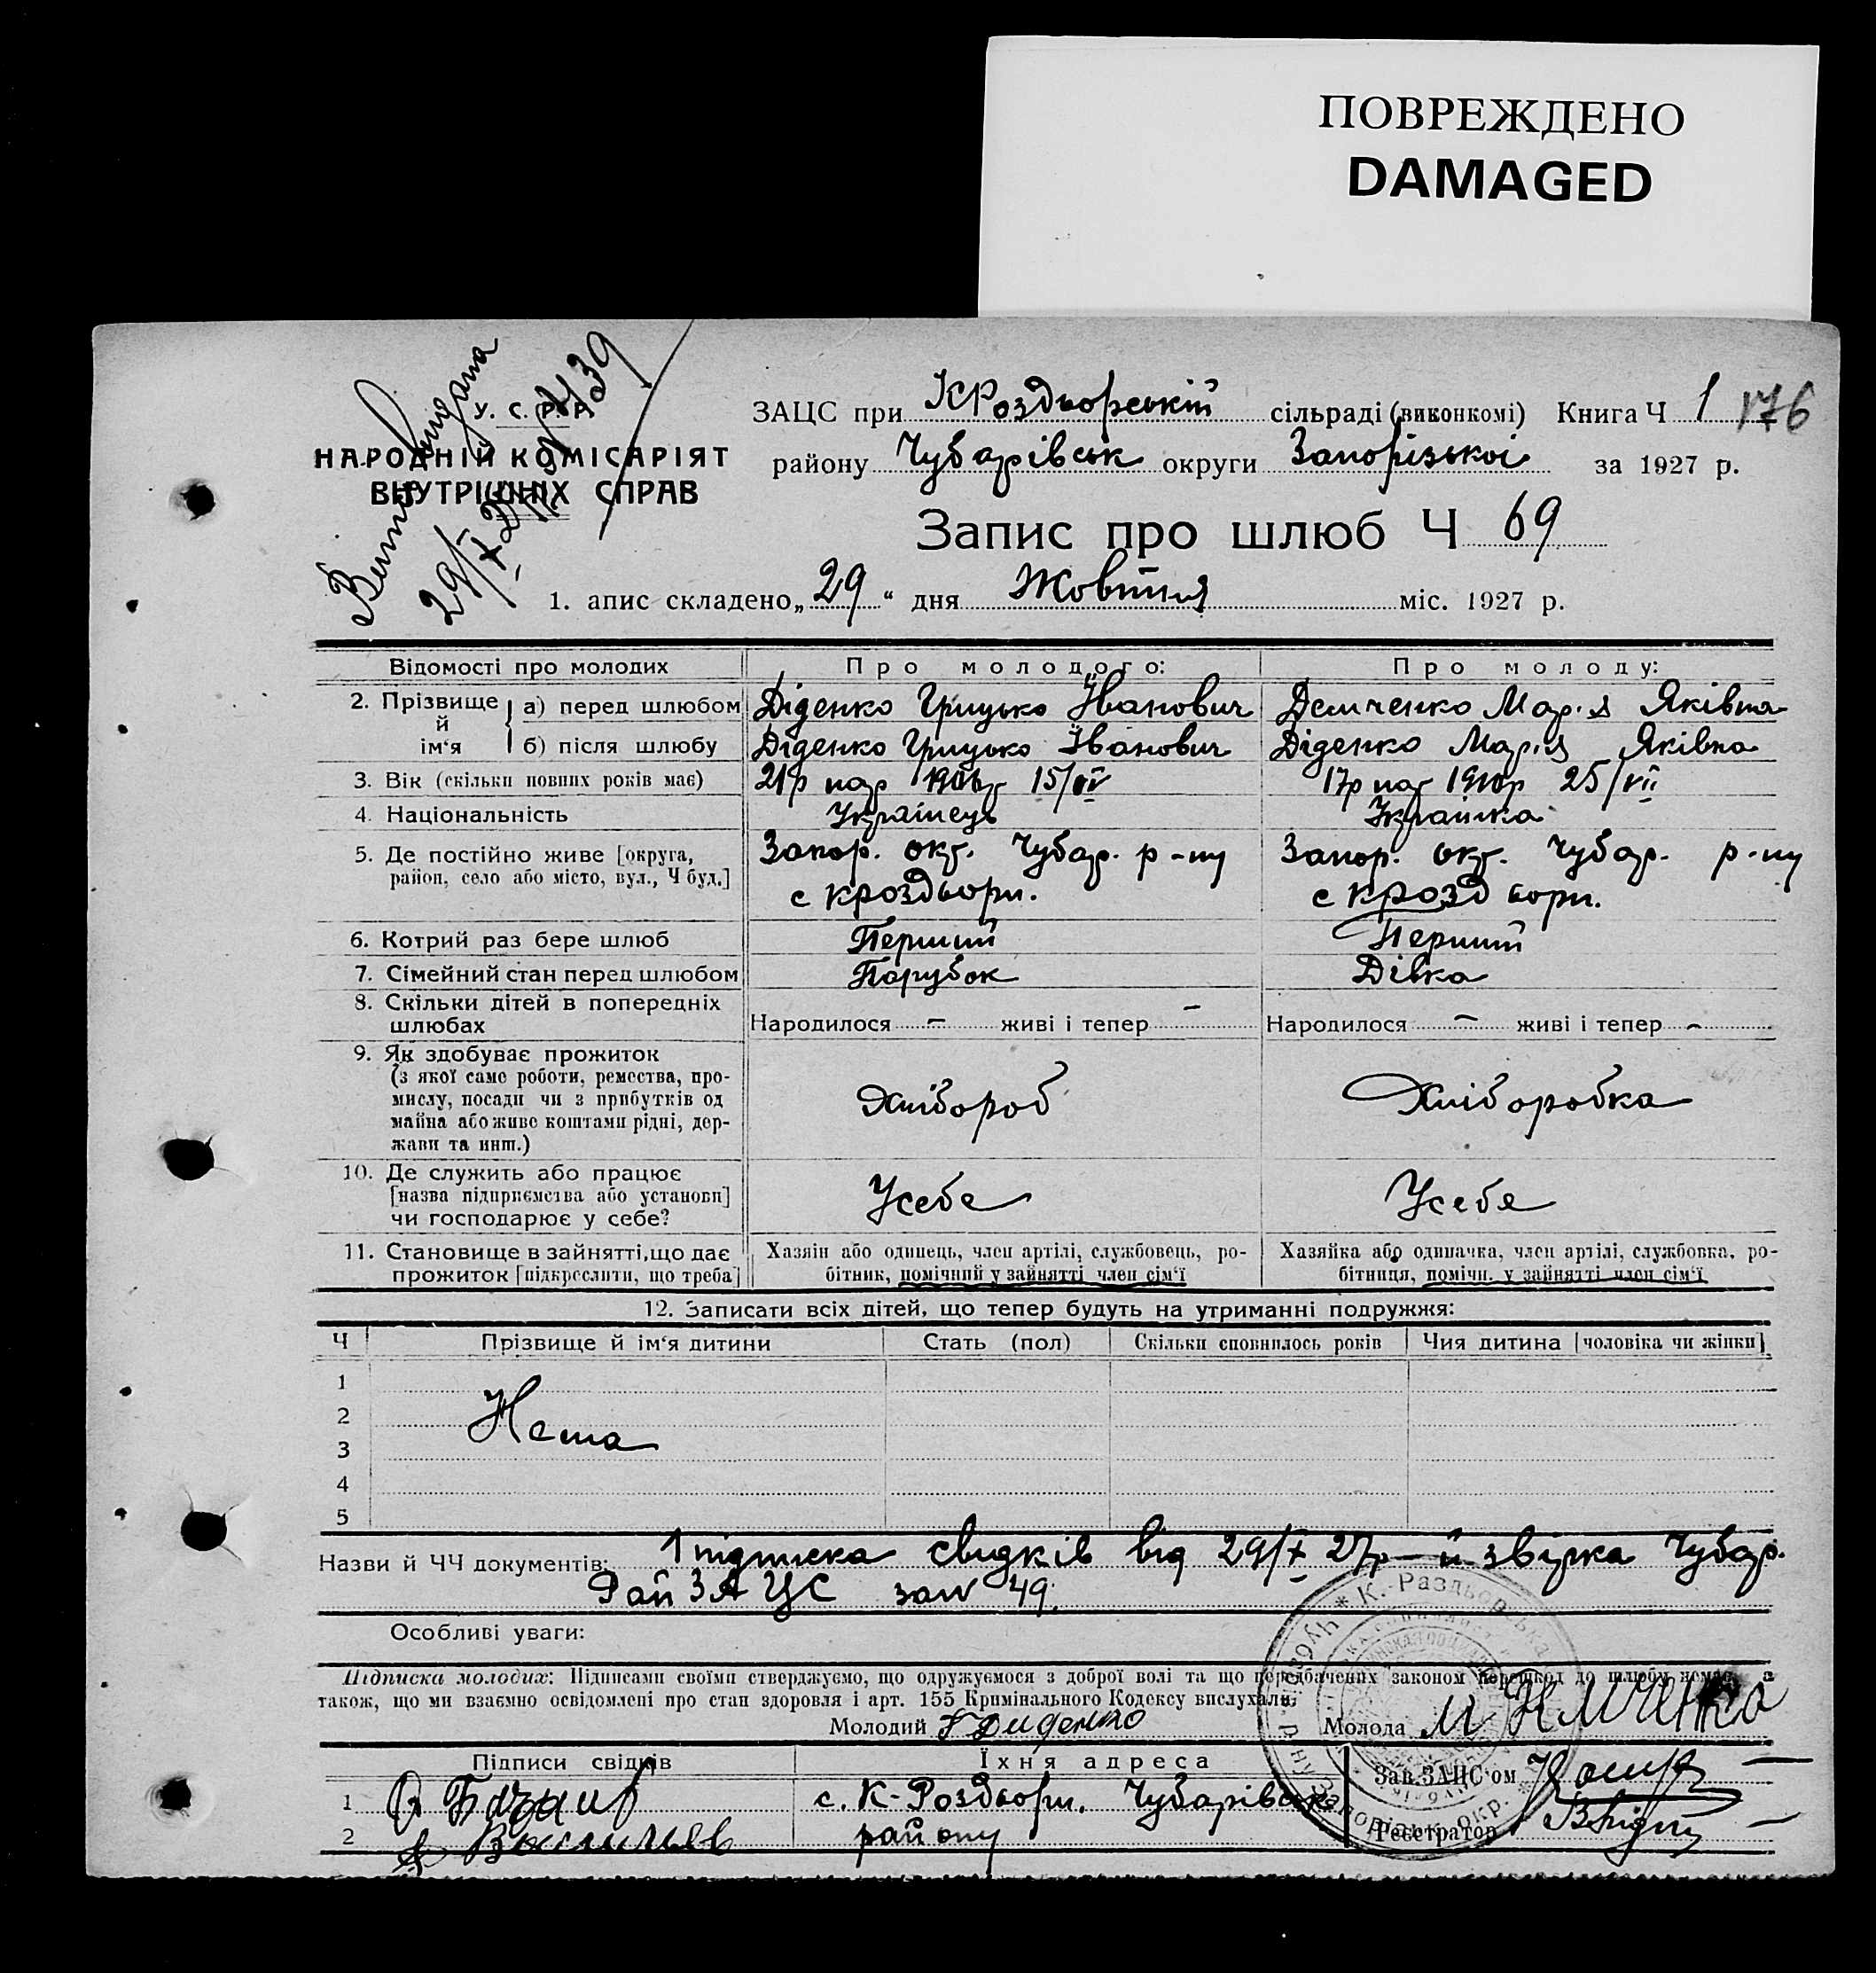 ПОВРЕЖДЕНО
DAMAGED
У. С. Р. Р.
НАРОДНІЙ КОМІСАРІЯТ
ВНУТРІШНІХ СПРАВ
29/X 27
ЗАЦС при КРоздьорській сільраді (виконкомі) Книга Ч 1 176
району Чубарівськ округи Запорізької за 1927 р.
Запис про шлюб Ч 69
1. апис складено „29“ дня Жовтня міс. 1927 р.
Відомості про молодих Про молодого: Про молоду:
2. Прізвище й ім‘я а) перед шлюбом Діденко Грицько Іванович Демченко Марія Яківна
б) після шлюбу Діденко Грицько Іванович Діденко Марія Яківна
3. Вік (скільки повних років має) 21р нар 1906р 15/IV 17р нар 1910р 25/VII
4. Національність Українець Українка
5. Де постійно живе [округа, район, село або місто, вул., Ч буд.] Запор. окр. Чубар. р-ну Запор. окр. Чубар. р-ну
с Кроздьори. с Кроздьори.
6. Котрий раз бере шлюб Перший Перший
7. Сімейний стан перед шлюбом Парубок Дівка
8. Скільки дітей в попередніх шлюбах Народилося - живі і тепер - Народилося - живі і тепер -
9. Як здобуває прожиток
(з якої саме роботи, ремества, про-
мислу, посади чи з прибутків од
майна або живе коштами рідні, дер-
жави та инш.) Хлібороб Хліборобка
10. Де служить або працює
[назва підприємства або установи]
чи господарює у себе? Усебе Усебя
11. Становище в зайнятті, що дає
прожиток [підкреслити, що треба]
Хазяін або одинець, член артілі, службовець, ро-
бітник, помічний у зайнятті член сім‘ї
Хазяйка або одиначка, член артілі, службовка, ро-
бітниця, помічн. у зайнятті член сім‘ї
12. Записати всіх дітей, що тепер будуть на утриманні подружжя:
Ч Прізвище й ім‘я дитини Стать (пол) Скільки сповнилось років Чия дитина [чоловіка чи жінки]
1
2 Нема
3
4
5
Назви й ЧЧ документів: 1 підписка свидків від 29/X 27р й звірка Чубар.
Рай ЗАЦС за № 49.
Особливі уваги:
Підписка молодих: Підписами своїми стверджуємо, що одружуємося з доброї волі та що передбачених законом перешкод до шлюбу немає, а
також, що ми взаємно освідомлені про стан здоровля і арт. 155 Кримінального Кодексу вислухали:
Молодий Г Диденко Молода
Підписи свідків Їхня адреса Зав. ЗАЦС‘ом
1 с. К-Роздьори. Чубарівськ
2 району Реєстратор